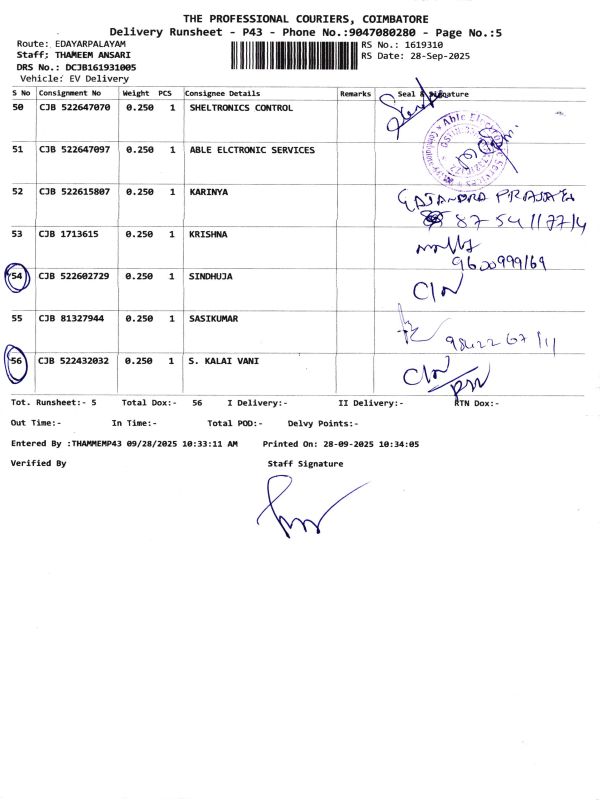 THE PROFESSIONAL COURIERS, COIMBATORE
Delivery Runsheet - P43 - Phone No.:9047080280 - Page No.:5
Route: EDAYARPALAYAM
Staff; THAMEEM ANSARI
DRS No.: DCJB161931005
Vehicle: EV Delivery
RS No.: 1619310
RS Date: 28-Sep-2025
S No Consignment No Weight PCS Consignee Details Remarks Seal & Signature
50 CJB 522647070 0.250 1 SHELTRONICS CONTROL
51 CJB 522647097 0.250 1 ABLE ELCTRONIC SERVICES
52 CJB 522615807 0.250 1 KARINYA
87 54 117714
53 CJB 1713615 0.250 1 KRISHNA
9600999169
54 CJB 522602729 0.250 1 SINDHUJA
C/N
55 CJB 81327944 0.250 1 SASIKUMAR
56 CJB 522432032 0.250 1 S. KALAI VANI
C/N
Tot. Runsheet:- 5 Total Dox:- 56 I Delivery:- II Delivery:- RTN Dox:-
Out Time:- In Time:- Total POD:- Delvy Points:-
Entered By :THAMMEMP43 09/28/2025 10:33:11 AM Printed On: 28-09-2025 10:34:05
Verified By Staff Signature